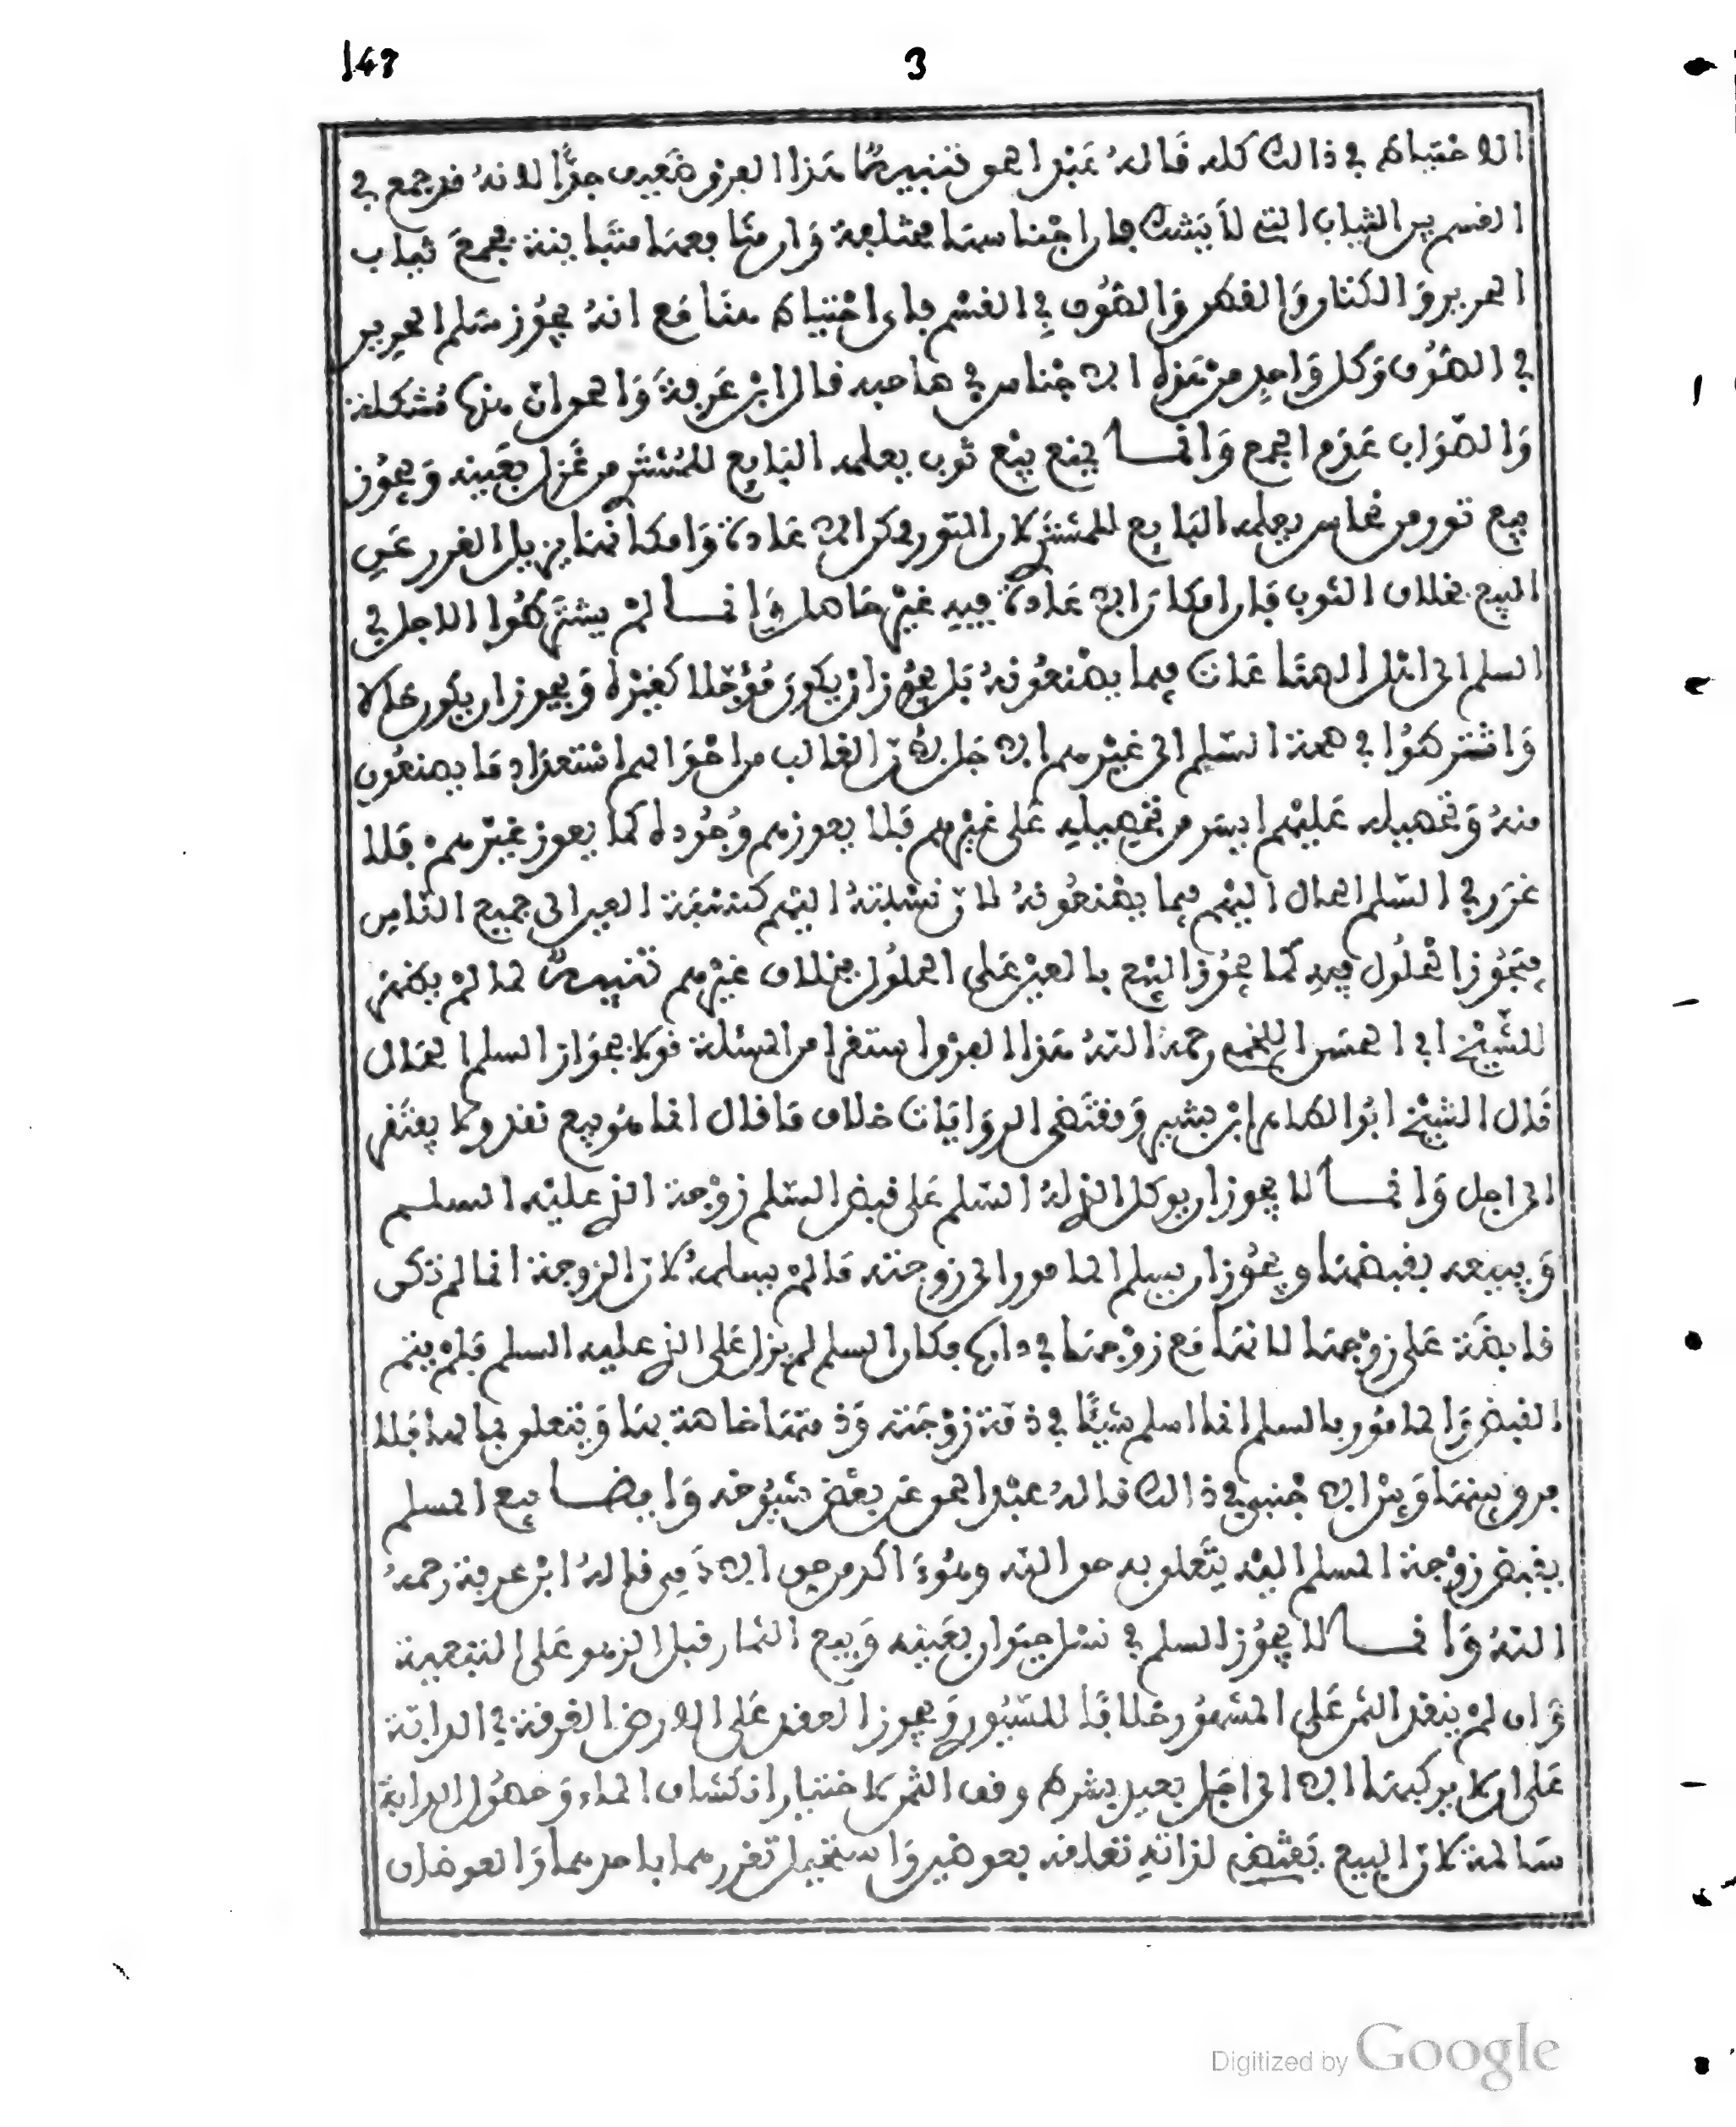 148 3
الاحتياط في ذالك كله قاله عبد الحق تنبيه هذا الفرق ضعيف جدا لانه قد جمع في
القسم بين الثياب التي لا يشك ان اجناسها مختلفة وان منافعها متباينة بجمع ثياب
الحرير والكتان والقطن والصوف في القسم فاي احتياط هنا مع انه يجوز سلم الحرير
في الصوف وكل واحد من هذه الاجناس في صاحبه قال ابن عرفة والجواب منها مشكلة
والصواب عدم الجمع وانما يمنع بيع ثوب يعلمه البايع للمشتر من غزل بعينه ويجوز
بيع تور من نحاس يعلمه البايع للمشتر لان التور امكان اعادة وامكانها يزيل الغرر عن
البيع بخلاف الثوب فان امكان اعادة فيه غير حاصل وانما لم يشترطوا الاجل في
السلم الى اهل الصناعات فيما يصنعونه بل يجوز ان يكون مؤجلا كغيره ويجوز ان يكون على الا
واشترطوا في صحة السلم الى غيرهم الاجل لان الغالب من احوالهم استعداد ما يصنعون
منه وتحصيله عليهم ايسر من تحصيله على غيرهم فلا يعوزهم وجوده كما يعوز غيرهم فلا
غرر في السلم الحال اليهم فيما يصنعونه لان نسبته اليهم كنسبة العين الى جميع الناس
فيجوز الحلول فيه كما يجوز البيع بالعين على الحلول بخلاف غيرهم تنبيه لما لم يظهر
للشيخ ابي الحسن اللخمي رحمه الله هذا الفرق استقرا من المسئلة قولا بجواز السلم الحال
قال الشيخ ابو الطاهر ابن بشير ومقتضى الروايات خلاف ما قال انما هو بيع نقد ولا يفتقر
الى اجل وانما لا يجوز ان يوكل الذي له السلم على قبض السلم زوجة الذي عليه السلم
ويبيعه بقبضها ويجوز ان يسلم المامور الى زوجته ما لم يسلمه لان الزوجة انما لم تكن
قابضة على زوجها لانها مع زوجها في دارها فكان السلم لم يزل على الذي عليه السلم فلم يتم
القبض والمامور بالسلم انما اسلم شيئا في ذمة زوجته وذمتها خاصة بها ويتعلق بمالها فلا
فرق بينها وبين الاجنبي في ذالك قاله عبد الحق عن بعض شيوخه وايضا بيع المسلم
بقبض زوجة المسلم اليه يتعلق به حق الله وهو ءاكد من حق الاذمي قاله ابن عرفة رحمه
الله وانما لا يجوز السلم في نسل حيوان بعينه وبيع الثمار قبل الزهو على التبقية
وان لم ينقد الثمر على المشهور خلافا للسيوري ويجوز العقد على الارض الغرقة في الدابة
على ان لا يركبها الا الى اجل بعيد بشرط وقف الثمن لاختيار انكشاف الماء وحصول الدابة
سالمة لان البيع يقتضي لذاته تعلقه بعوضين واستحيل تقررهما باحدهما والعوضان